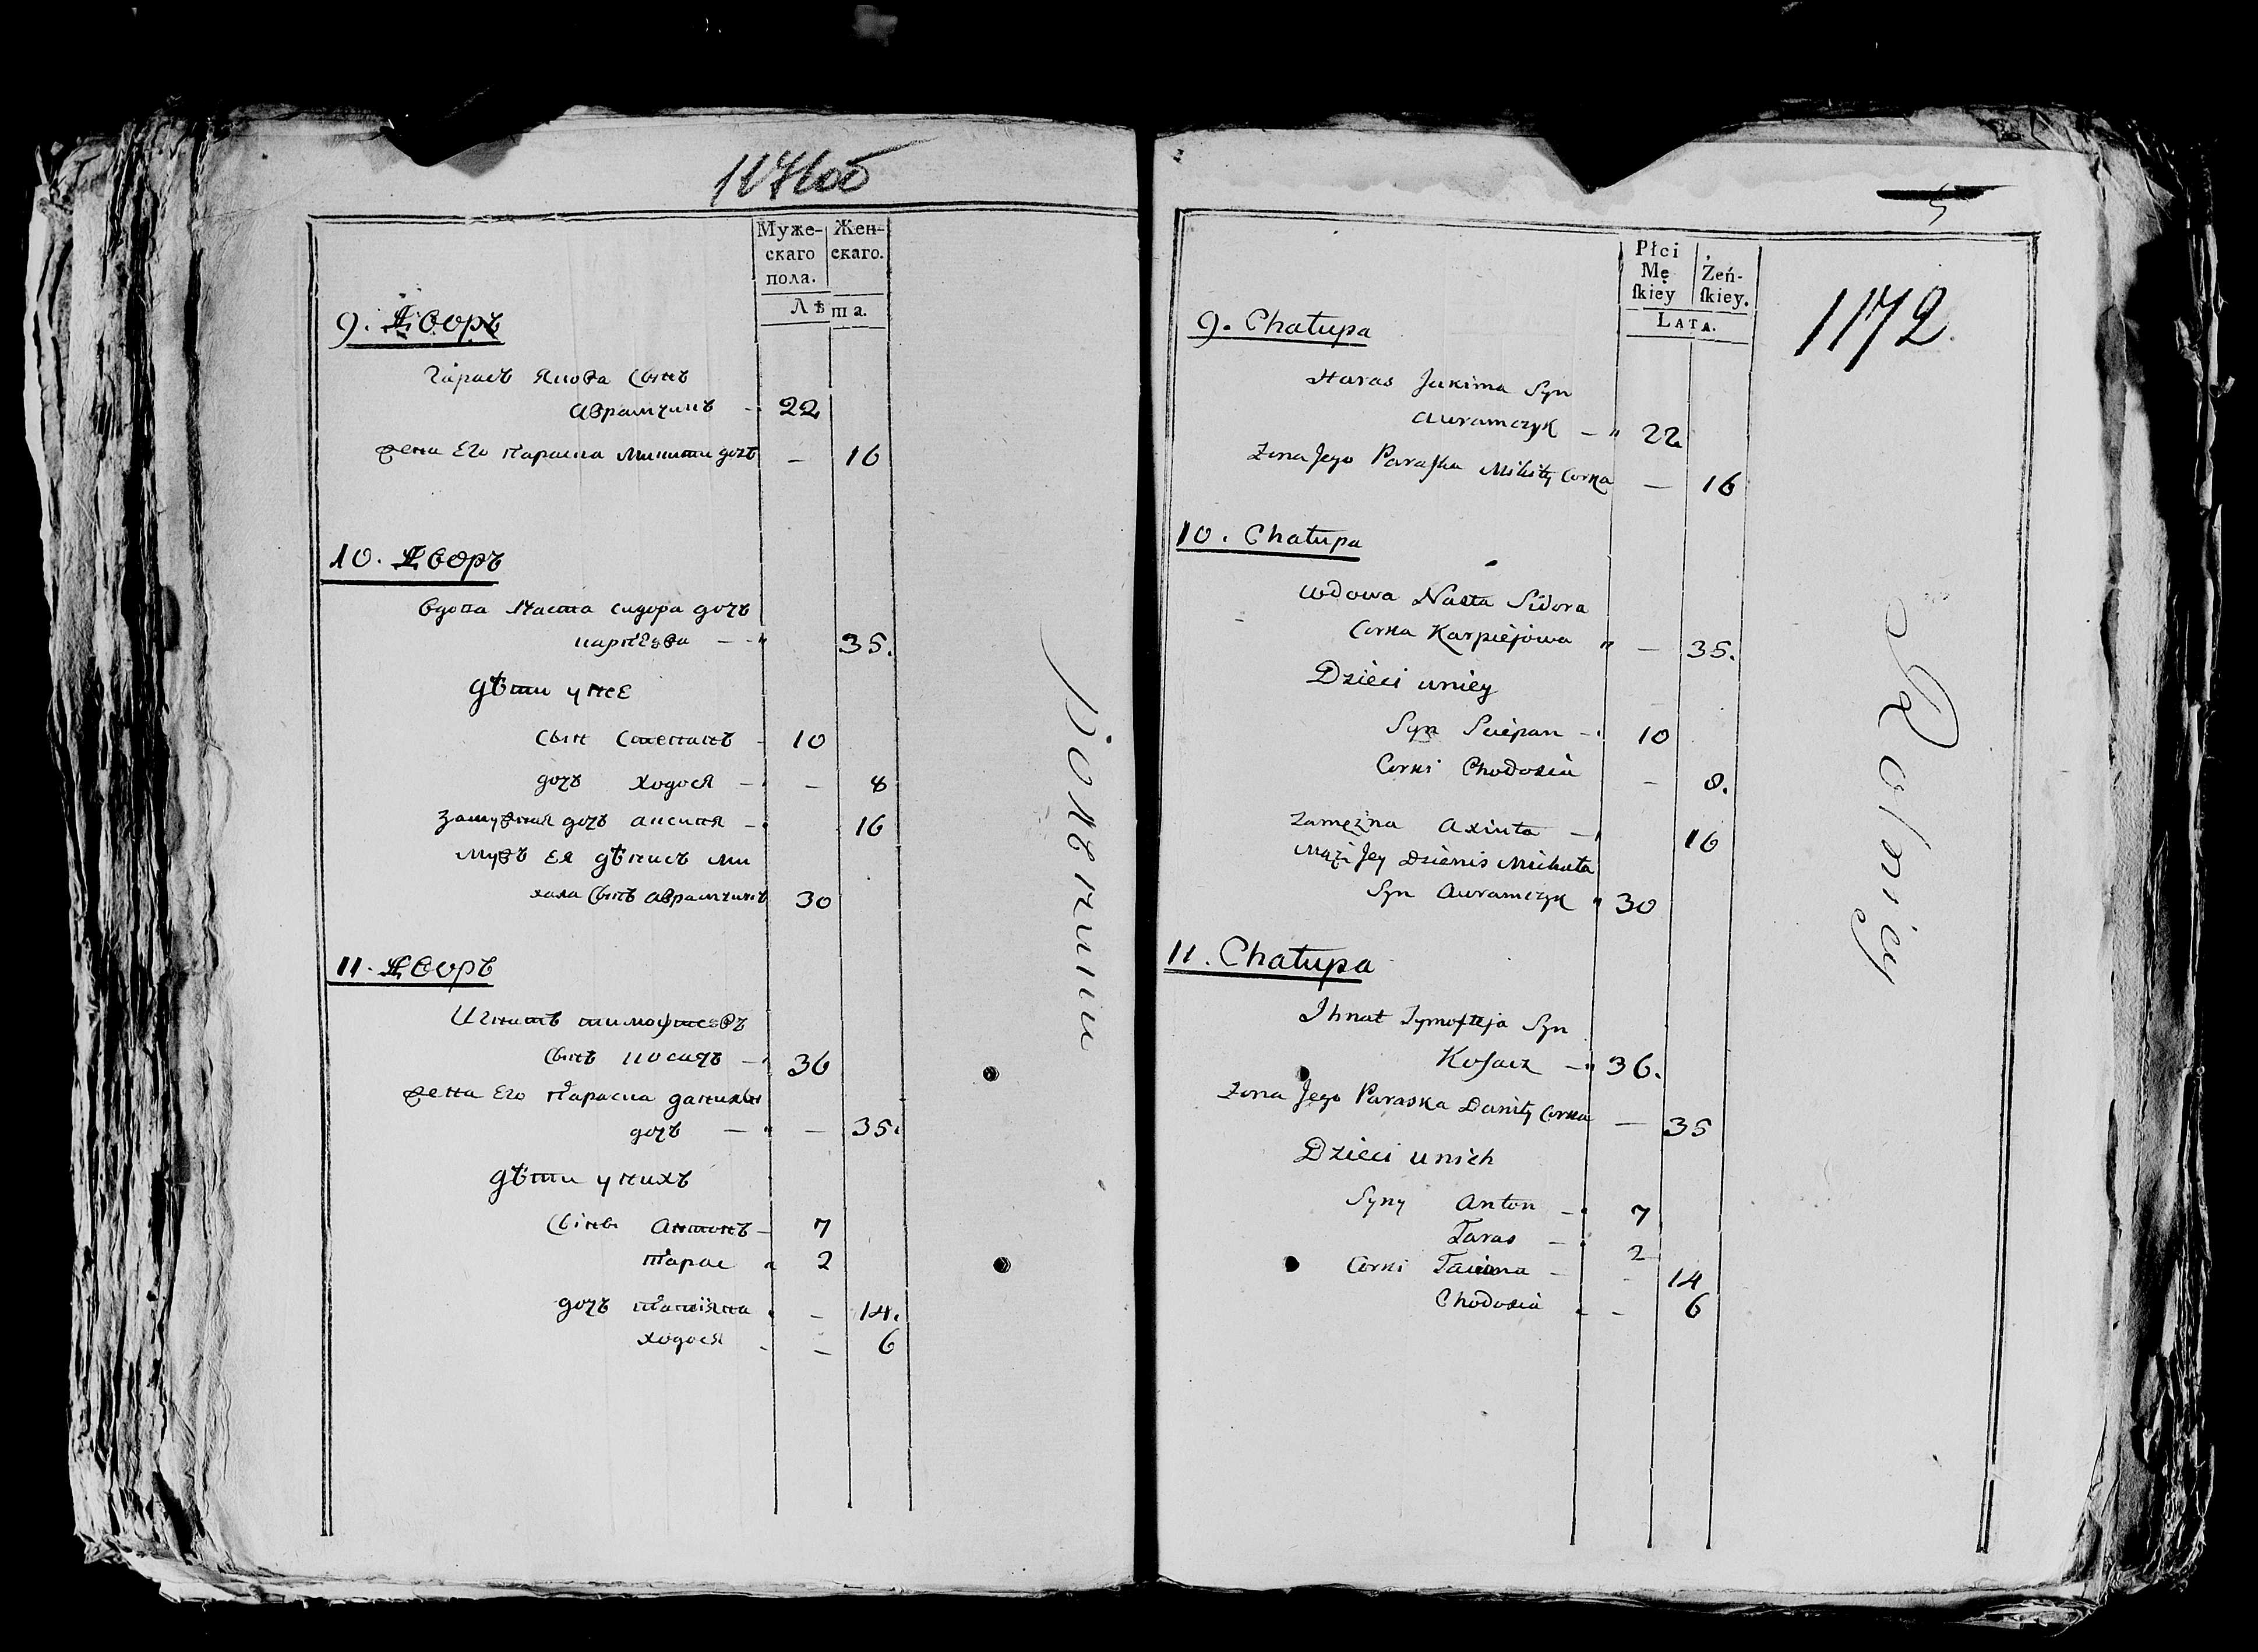 1171об
Муже-
скаго
пола.
Жен-
скаго.
Лѣта.
9. Дворъ
Гарасъ Якова Сынъ
Аврамчикъ - 22
жена Его Параска Микиты дочь — 16
10. Дворъ
Вдова Наста сидора дочь
карпѣева — 35.
дѣти у нее
Сын Степанъ - 10
дочь Ходося — 8
Замужняя дочь аксиня - 16
Мужъ Ея дѣнисъ Ми
хала Сынъ Аврамчикъ 30
11. Дворъ
Игнатъ тимофтеевъ
Сынъ косачъ - 36
жена Его Параска данилы
дочь — 35.
дѣти у нихъ
Сыны Антонъ - 7
тарас 2
дочь татіяна - 14.
ходося - 6
5
Płci
Mę
skiey
Żeń-
skiey.
LATA.
1172.
9. Chałupa
Haras Jakima Syn
Auramczyk — 22
Zona Jego Paraska Mikity Corka — 16
10. Chałupa
Wdowa Nasta Sidora
Corka Karpiejowa — 35.
Dzieci uniey
Syn Sciepan - 10
Corki Chodosia — 8.
zamężna Axinta — 16
Mąż Jey Dzienis Michała
Syn Auramczyk 30
11. Chałupa
Ihnat Tymofteja Syn
Kosacz — 36.
Zona Jego Paraska Daniły Corka — 35
Dzieci unich
Syny Anton - 7
Taras - 2
Corki - 14
Chodosia - 6